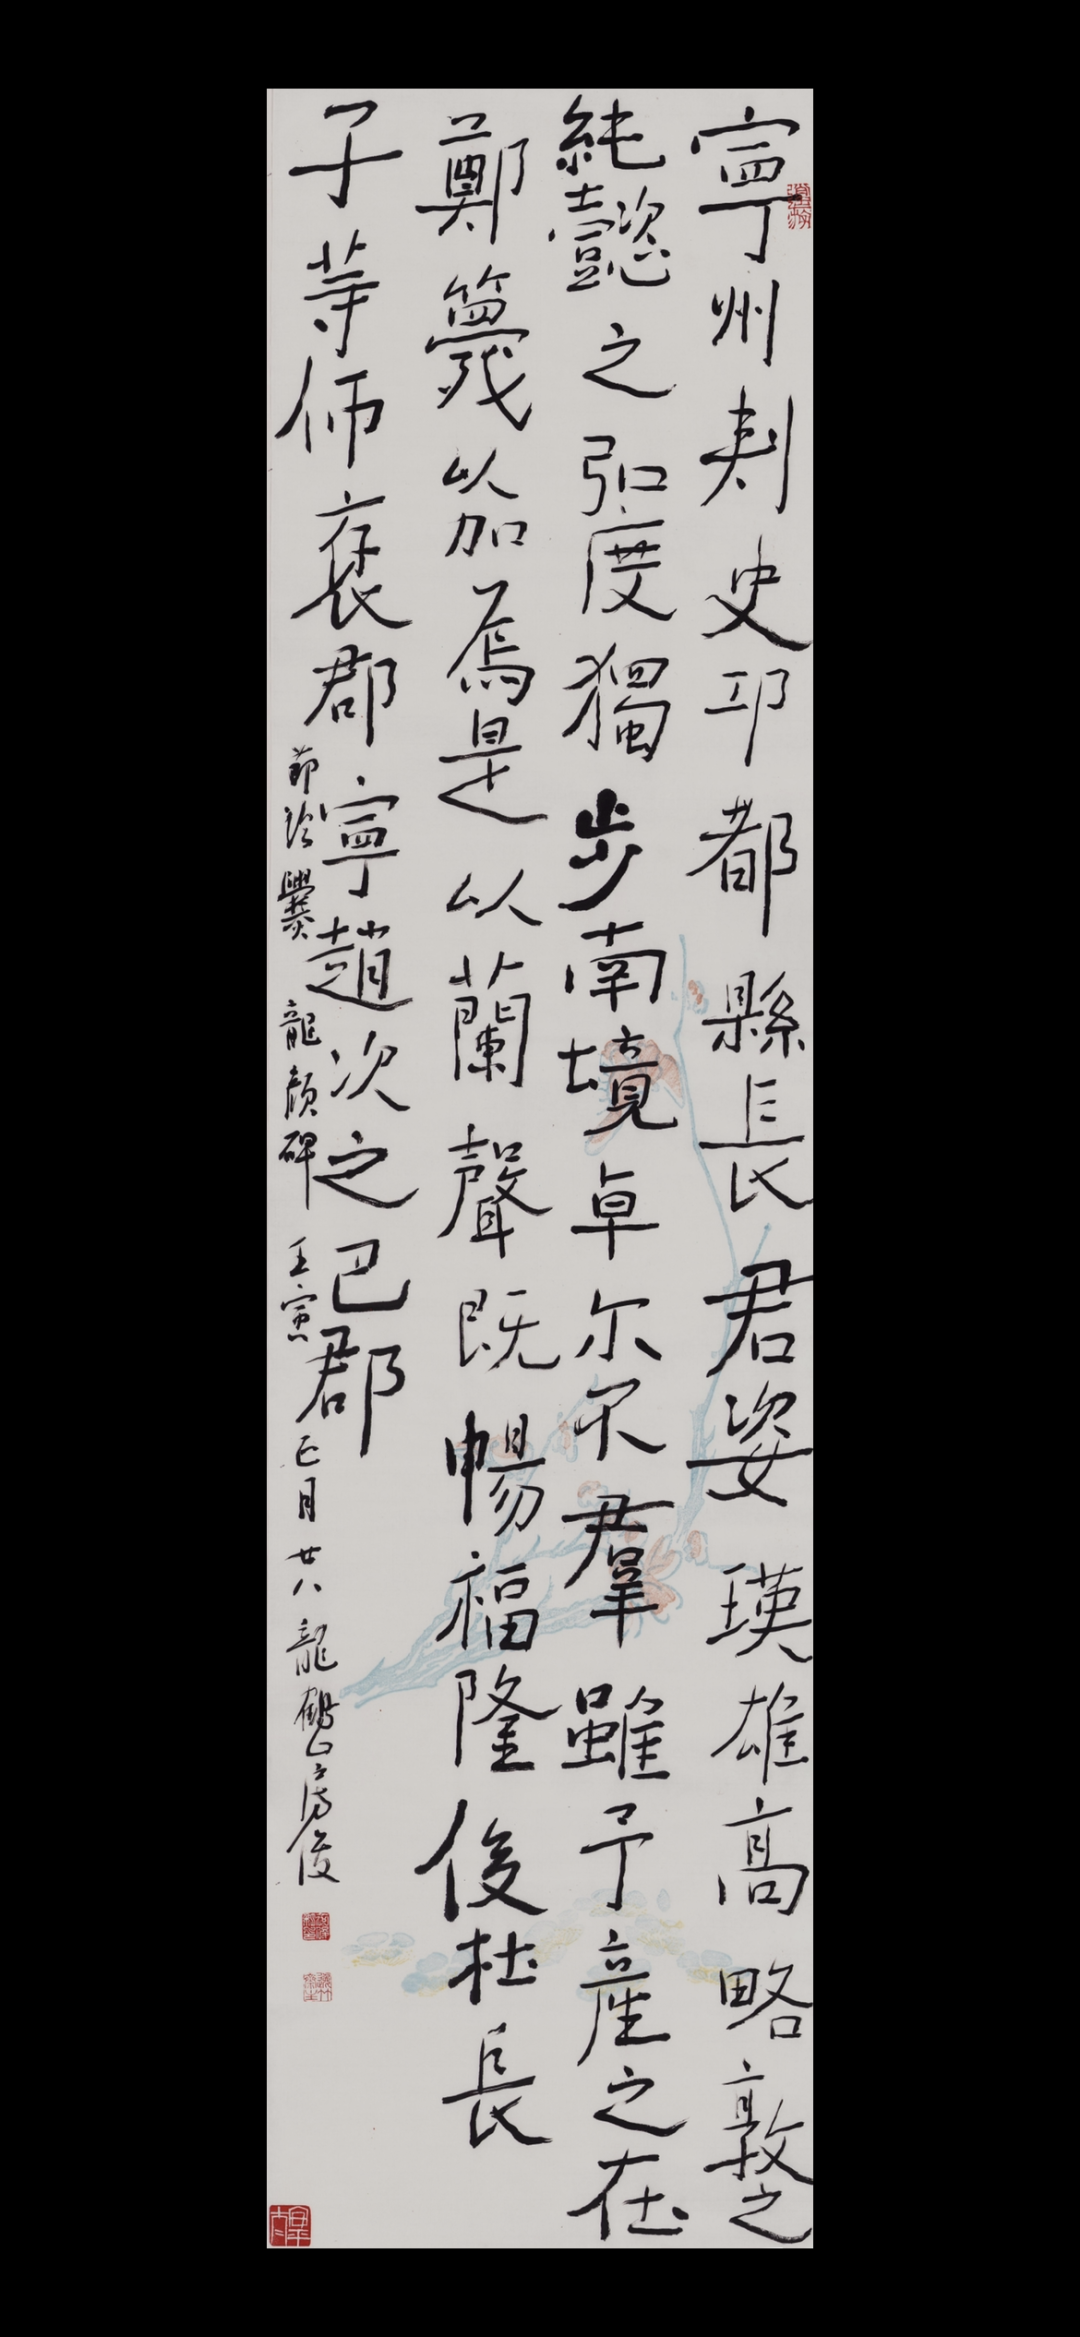 寧州刺史邛都縣長君姿瑛雄高略敦之
純懿之弘度獨步南境卓尔不羣雖子産之在
鄭篾以加焉是以蘭聲既暢福隆後杜長
子等師褒郡寧趙次之巴郡
節臨爨龍顔碑王寅正月廿八龍鶴山房俊